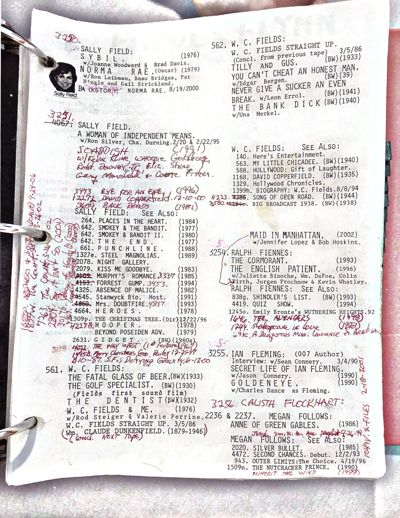 3250.
SALLY FIELD:
S Y B I L. (1976)
w/Joanne Woodward & Brad Davis.
NORMA RAE.(Oscar) (1979)
w/Ron Leibman, Beau Bridges, Pat
Hingle and Gail Strickland.
NORMA RAE. 8/19/2000
Sally Field
3251.
SALLY FIELD.
A WOMAN OF INDEPENDENT MEANS.
w/Ron Silver, Cha. Durning.2/20 & 2/22/95
SOAPDISH (1991)
w/Kevin Kline, Whoopi Goldberg,
Robt. Downey, Jr.
Garry Marshall & Carrie Fisher.
3973 EYE FOR AN EYE. (1996)
DAVID COPPERFIELD. 12-10-00
SALLY FIELD: See Also:
264. PLACES IN THE HEART. (1984)
642. SMOKEY & THE BANDIT. (1977)
642. SMOKEY & BANDIT II. (1980)
642. T H E E N D. (1977)
661. P U N C H L I N E. (1988)
1327e. STEEL MAGNOLIAS. (1989)
2078. NIGHT GALLERY.
2079. KISS ME GOODBYE. (1983)
MURPHY'S ROMANCE 3337 (1985)
FORREST GUMP. 3453. (1994)
4325. ABSENCE OF MALICE. (1982)
4645. Stanwyck Bio. Host. (1991)
Mrs. DOUBTFIRE. (1993)
4664. H E R O E S. (1978)
1509j. THE CHRISTMAS TREE.(Dir)12/22/96
H O O P E R. (1978)
BEYOND POSEIDON ADV. (1979)
2631. G I D G E T. (1960s)
561. W. C. FIELDS:
THE FATAL GLASS OF BEER.(BW)(1933)
THE GOLF SPECIALIST. (BW)(1930)
(Fields first sound film)
T H E D E N T I S T(BW)(1932)
W. C. FIELDS & ME. (1976)
w/Rod Steiger & Valerie Perrine.
W.C. FIELDS STRAIGHT UP. 3/5/86
(Wm. CLAUDE DUNKENFIELD.(1879-1946)
(Concl. NEXT TAPE)
562. W. C. FIELDS:
W. C. FIELDS STRAIGHT UP. 3/5/86
(Concl. from previous tape) (BW)
TILLY AND GUS. (BW)(1933)
YOU CAN'T CHEAT AN HONEST MAN.
w/Edgar Bergen. (BW)(39)
NEVER GIVE A SUCKER AN EVEN
BREAK. w/Leon Errol. (BW)(1941)
T H E B A N K D I C K (BW)(1940)
w/Una Merkel.
W. C. FIELDS: See Also:
140. Here's Entertainment.
563. MY LITTLE CHICADEE. (BW)(1940)
588. HOLLYWOOD: Gift of Laughter.
168. DAVID COPPERFIELD. (BW)(1935)
1329. Hollywood Chronicles.
1399h. BIOGRAPHY: W.C. Fields.8/8/94
SONG OF OPEN ROAD. (BW)(1944)
BIG BROADCAST 1938. (BW)(1938)
MAID IN MANHATTAN. (2002)
w/Jennifer Lopez & Bob Hoskins.
3254. RALPH FIENNES:
THE CORMORANT. (1993)
THE ENGLISH PATIENT. (1996)
w/Juliette Binoche, Wm. DaFoe, Colin
Firth, Jurgen Prochnow & Kevin Whatley.
RALPH FIENNES: See Also:
838g. SHINDLER'S LIST. (BW)(1993)
4419. QUIZ SHOW. (1994)
1245o. Emily Bronte's WUTHERING HEIGHTS.92
THE AVENGERS (1998)
3255. IAN FLEMING: (007 Author)
Interview: w/Sean Connery. 3/4/90
SECRET LIFE OF IAN FLEMING.
w/Jason Connery. (1990)
G O L D E N E Y E. (1990)
w/Charles Dance as Fleming.
3256 CALISTA FLOCKHART:
2236 & 2237. MEGAN FOLLOWS:
ANNE OF GREEN GABLES. (1986)
MEGAN FOLLOWS: See Also:
2020. SILVER BULLET. (1985)
4472. SECOND CHANCES. Debut. 12/2/93
943. OUTER LIMITS:The Choice. 4/19/96
1509n. THE NUTCRACKER PRINCE. (1990)
INHERIT THE WIND (1999)